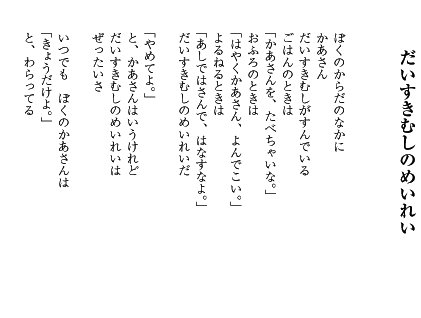 だいすきむしのめいれい
ぼくのからだのなかに
かあさん
だいすきむしがすんでいる
ごはんのときは
「かあさんを、たべちゃいな。」
おふろのときは
「はやくかあさん、よんでこい。」
よるねるときは
「あしではさんで、はなすなよ。」
だいすきむしのめいれいだ
「やめてよ。」
と、かあさんはいうけれど
だいすきむしのめいれいは
ぜったいさ
いつでも　ぼくのかあさんは
「きょうだけよ。」
と、わらってる